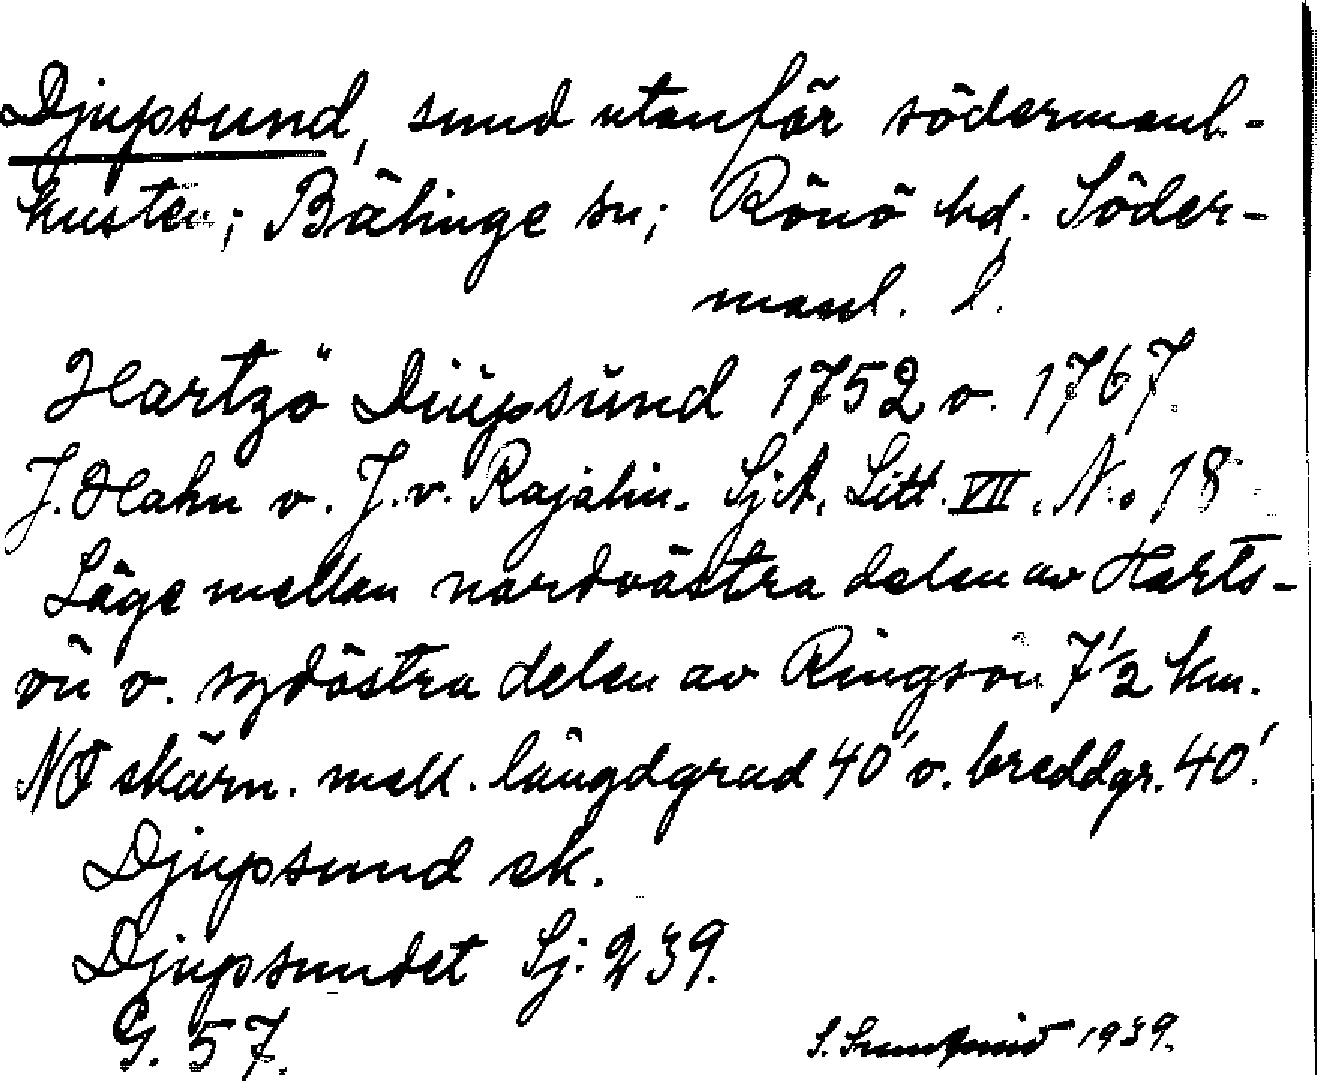 Djupsund, sund utanför södermanl.-
kusten; Bälinge sn; Rönö hd. Söder-
manl. l.
Hartzö Diüpsünd 1752 o. 1767.
J. Hahn o. J. v. Rajalin. Sjk. Litt. VII. No 18
Läge mellan nordvästra delen av Harts-
ön o. sydöstra delen av Ringsön 7½ km.
NO skärn. mell. längdgrad 40' o. breddgr. 40'.
Djupsund ek.
Djupsundet Sj: 239.
G. 57.
1939.